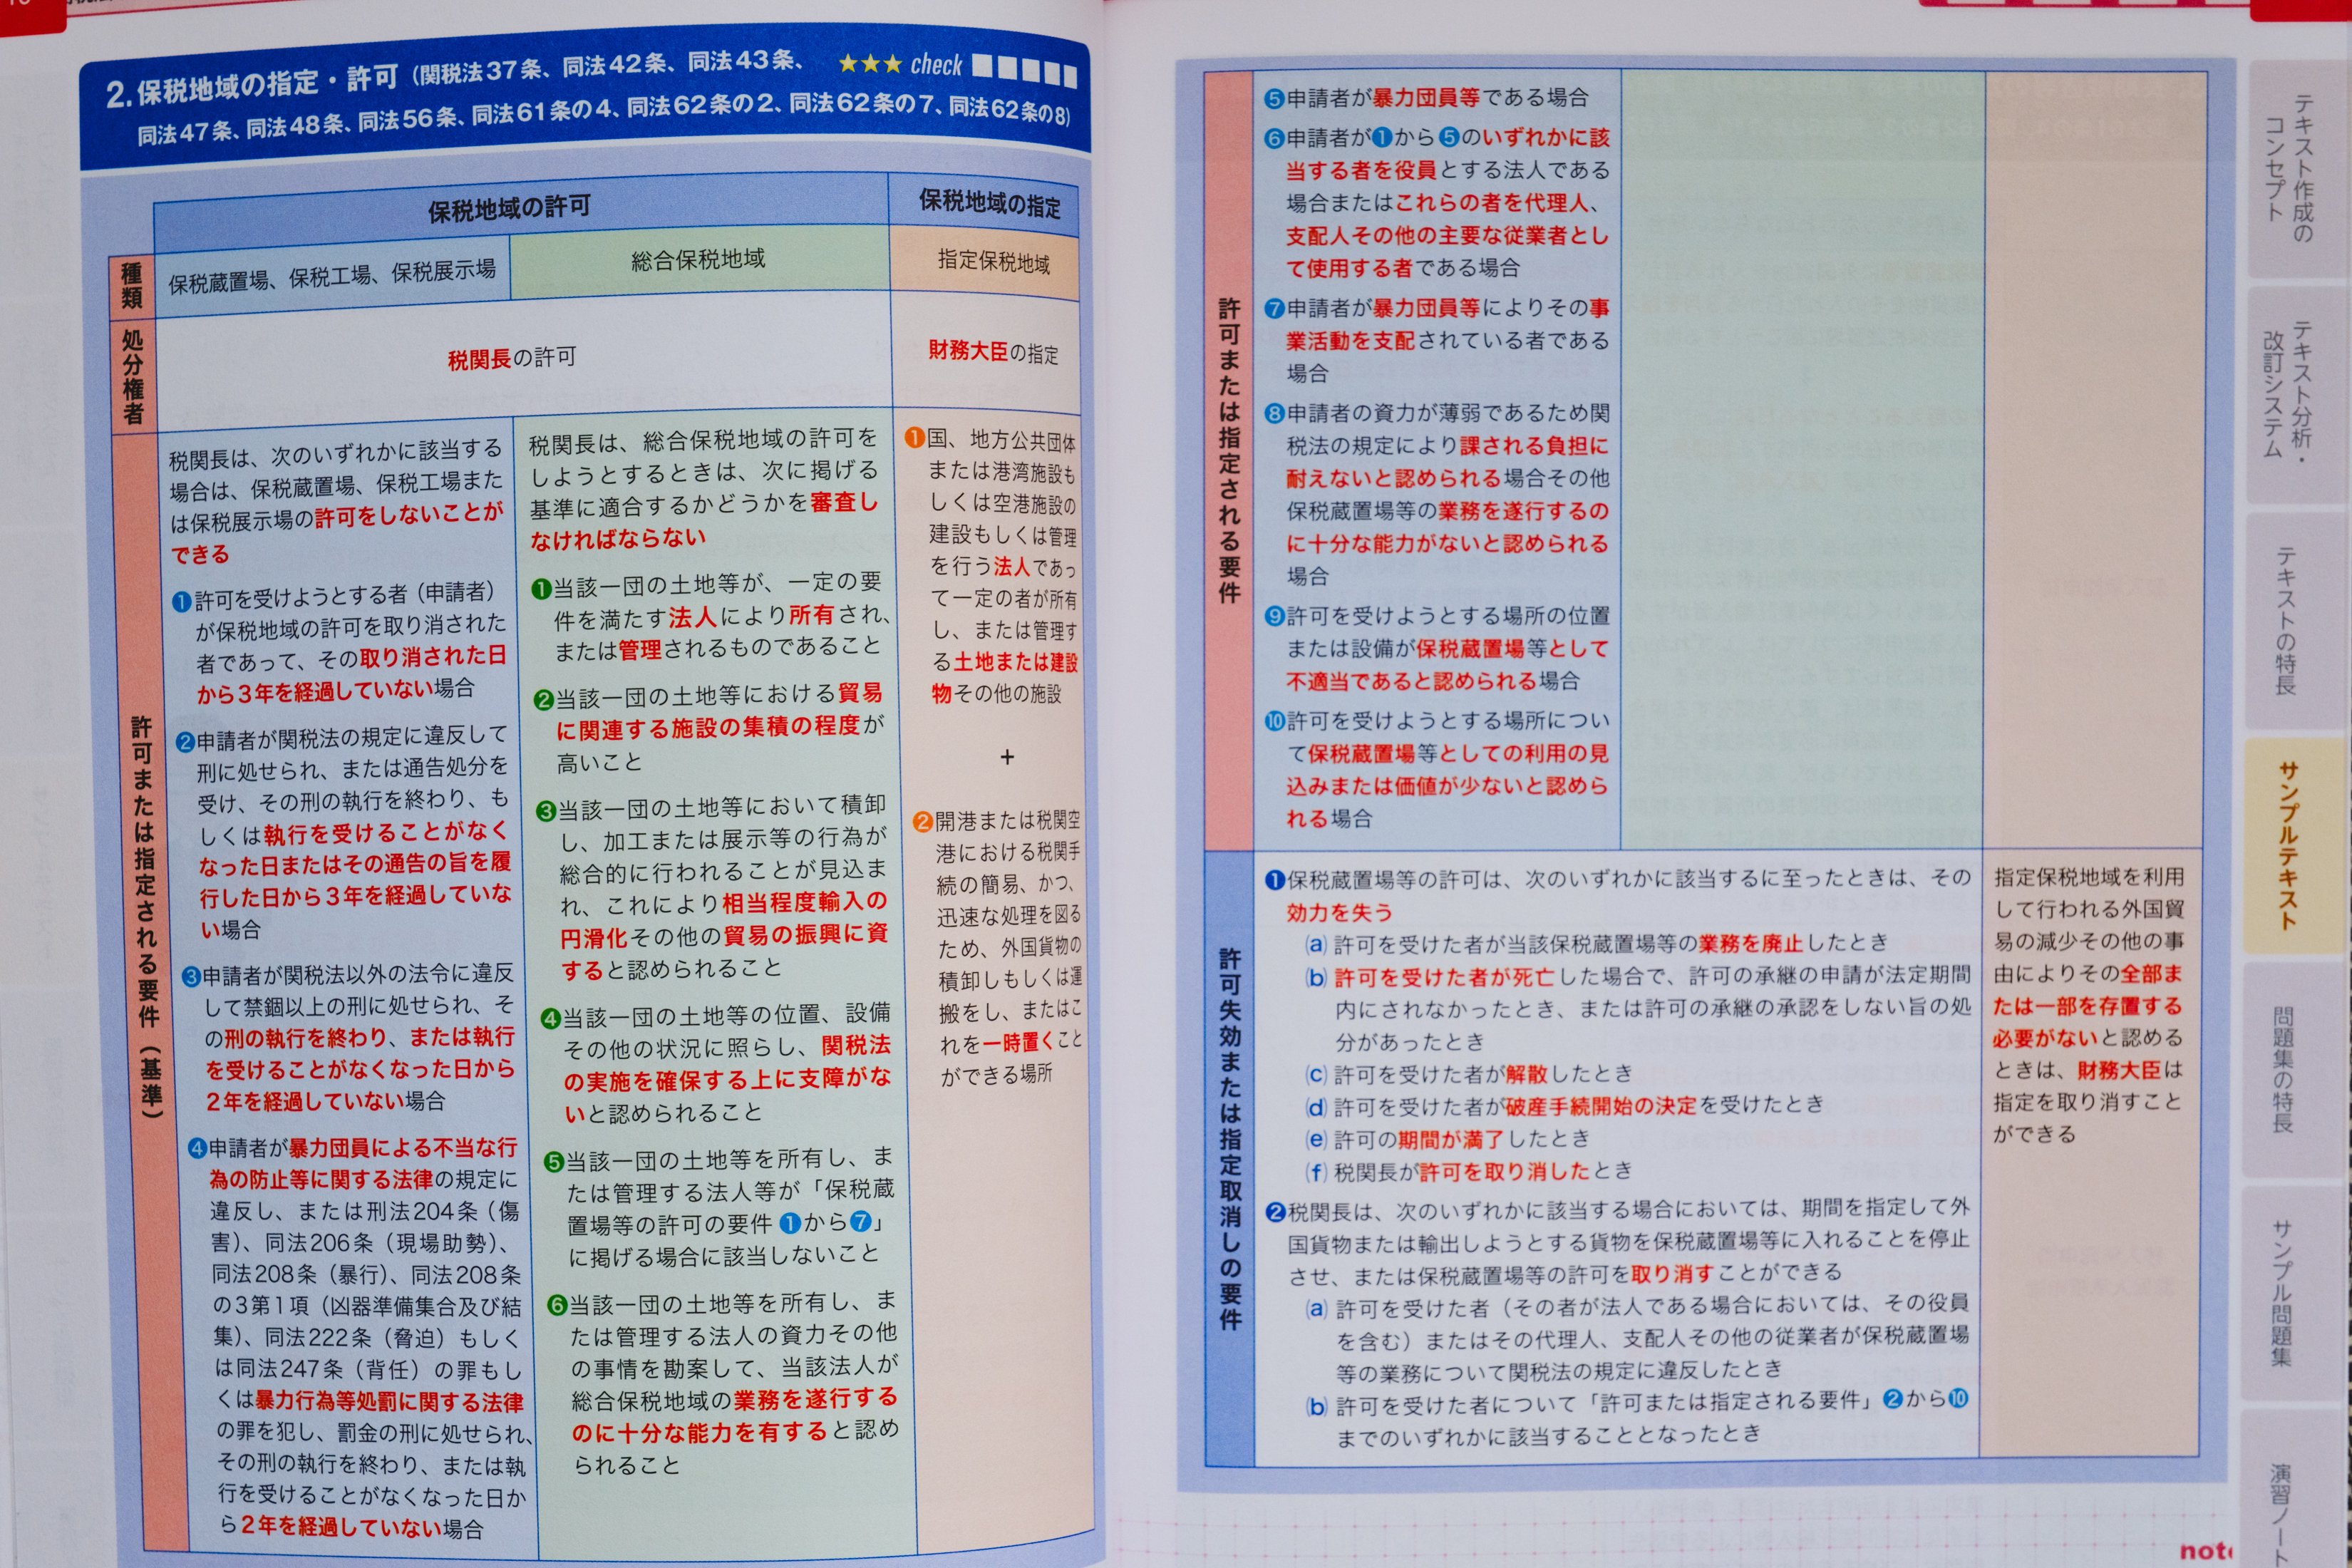 2.保税地域の指定・許可（関税法37条、同法42条、同法43条、 ★★★ check
同法47条、同法48条、同法56条、同法61条の4、同法62条の2、同法62条の7、同法62条の8)
保税地域の許可
保税地域の指定
種類
保税蔵置場、保税工場、保税展示場
総合保税地域
指定保税地域
処分権者
税関長の許可
財務大臣の指定
許可または指定される要件（基準）
税関長は、次のいずれかに該当する
場合は、保税蔵置場、保税工場また
は保税展示場の許可をしないことが
できる
❶許可を受けようとする者（申請者）
が保税地域の許可を取り消された
者であって、その取り消された日
から3年を経過していない場合
❷申請者が関税法の規定に違反して
刑に処せられ、または通告処分を
受け、その刑の執行を終わり、も
しくは執行を受けることがなく
なった日またはその通告の旨を履
行した日から3年を経過していな
い場合
❸申請者が関税法以外の法令に違反
して禁錮以上の刑に処せられ、そ
の刑の執行を終わり、または執行
を受けることがなくなった日から
2年を経過していない場合
❹申請者が暴力団員による不当な行
為の防止等に関する法律の規定に
違反し、または刑法204条（傷
害）、同法206条（現場助勢）、
同法208条（暴行）、同法208条
の3第1項（凶器準備集合及び結
集）、同法222条（脅迫）もしく
は同法247条（背任）の罪もし
くは暴力行為等処罰に関する法律
の罪を犯し、罰金の刑に処せられ、
その刑の執行を終わり、または執
行を受けることがなくなった日か
ら2年を経過していない場合
税関長は、総合保税地域の許可を
しようとするときは、次に掲げる
基準に適合するかどうかを審査し
なければならない
❶当該一団の土地等が、一定の要
件を満たす法人により所有され、
または管理されるものであること
❷当該一団の土地等における貿易
に関連する施設の集積の程度が
高いこと
❸当該一団の土地等において積卸
し、加工または展示等の行為が
総合的に行われることが見込ま
れ、これにより相当程度輸入の
円滑化その他の貿易の振興に資
すると認められること
❹当該一団の土地等の位置、設備
その他の状況に照らし、関税法
の実施を確保する上に支障がな
いと認められること
❺当該一団の土地等を所有し、ま
たは管理する法人等が「保税蔵
置場等の許可の要件❶から❼」
に掲げる場合に該当しないこと
❻当該一団の土地等を所有し、ま
たは管理する法人の資力その他
の事情を勘案して、当該法人が
総合保税地域の業務を遂行する
のに十分な能力を有すると認め
られること
❶国、地方公共団体
または港湾施設も
しくは空港施設の
建設もしくは管理
を行う法人であっ
て一定の者が所有
し、または管理す
る土地または建設
物その他の施設
+
❷開港または税関空
港における税関手
続の簡易、かつ、
迅速な処理を図る
ため、外国貨物の
積卸しもしくは運
搬をし、またはこ
れを一時置くこと
ができる場所
許可または指定される要件
❺申請者が暴力団員等である場合
❻申請者が❶から❺のいずれかに該
当する者を役員とする法人である
場合またはこれらの者を代理人、
支配人その他の主要な従業者とし
て使用する者である場合
❼申請者が暴力団員等によりその事
業活動を支配されている者である
場合
❽申請者の資力が薄弱であるため関
税法の規定により課される負担に
耐えないと認められる場合その他
保税蔵置場等の業務を遂行するの
に十分な能力がないと認められる
場合
❾許可を受けようとする場所の位置
または設備が保税蔵置場等として
不適当であると認められる場合
❿許可を受けようとする場所につい
て保税蔵置場等としての利用の見
込みまたは価値が少ないと認めら
れる場合
許可失効または指定取消しの要件
❶保税蔵置場等の許可は、次のいずれかに該当するに至ったときは、その
効力を失う
(a) 許可を受けた者が当該保税蔵置場等の業務を廃止したとき
(b) 許可を受けた者が死亡した場合で、許可の承継の申請が法定期間
内にされなかったとき、または許可の承継の承認をしない旨の処
分があったとき
(c) 許可を受けた者が解散したとき
(d) 許可を受けた者が破産手続開始の決定を受けたとき
(e) 許可の期間が満了したとき
(f) 税関長が許可を取り消したとき
❷税関長は、次のいずれかに該当する場合においては、期間を指定して外
国貨物または輸出しようとする貨物を保税蔵置場等に入れることを停止
させ、または保税蔵置場等の許可を取り消すことができる
(a) 許可を受けた者（その者が法人である場合においては、その役員
を含む）またはその代理人、支配人その他の従業者が保税蔵置場
等の業務について関税法の規定に違反したとき
(b) 許可を受けた者について「許可または指定される要件」❷から❿
までのいずれかに該当することとなったとき
指定保税地域を利用
して行われる外国貿
易の減少その他の事
由によりその全部ま
たは一部を存置する
必要がないと認める
ときは、財務大臣は
指定を取り消すこと
ができる
テキスト作成の
コンセプト
テキスト分析・
改訂システム
テキストの特長
サンプルテキスト
問題集の特長
サンプル問題集
演習ノート
note